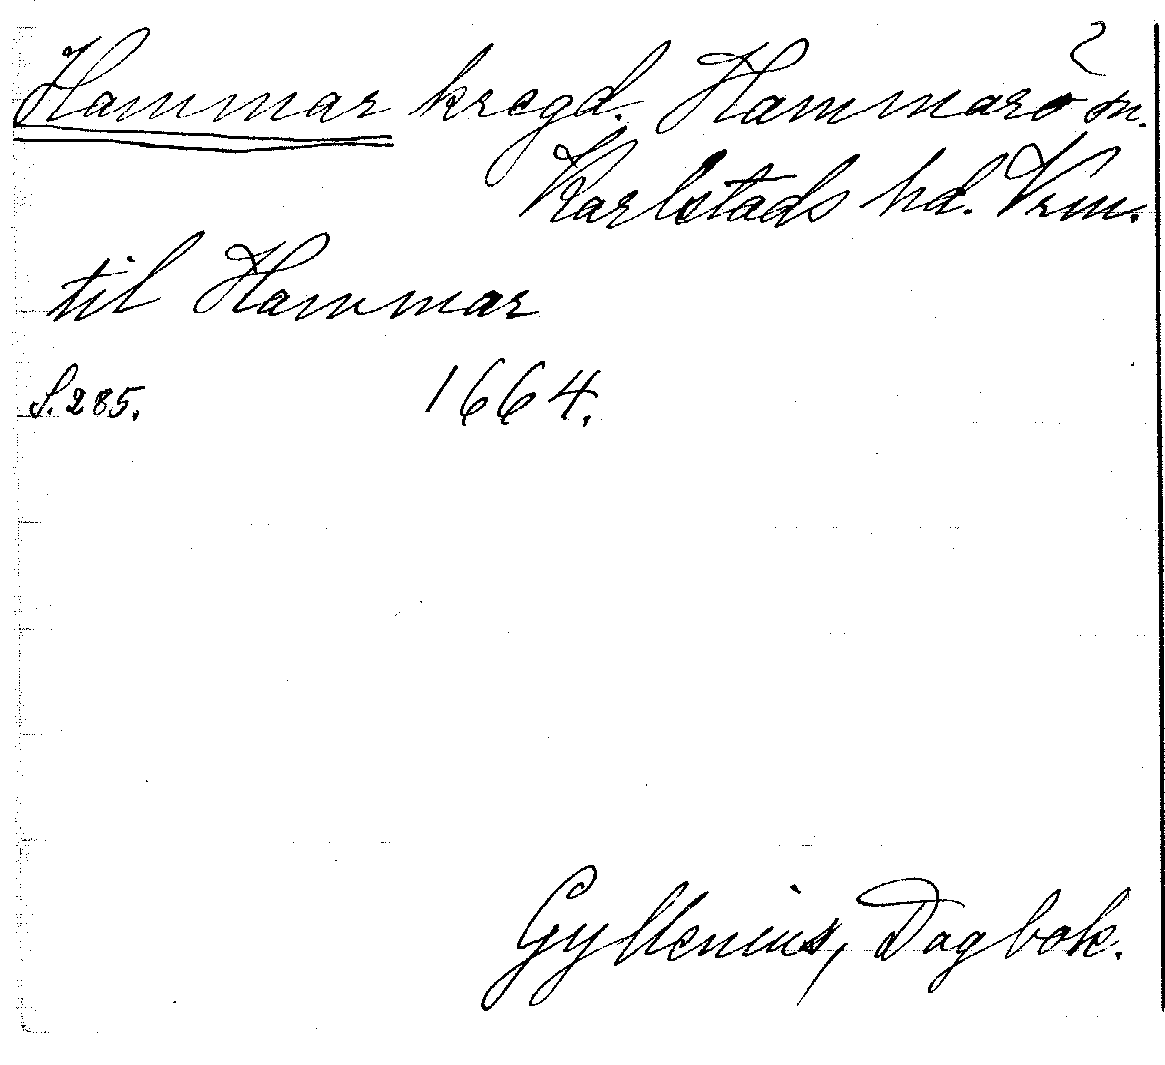 Hammar kregd. Hammarö sn.
Karlstads hd. Vrm.
til Hammar
S. 285. 1664.
Gyllenius, Dagbok.